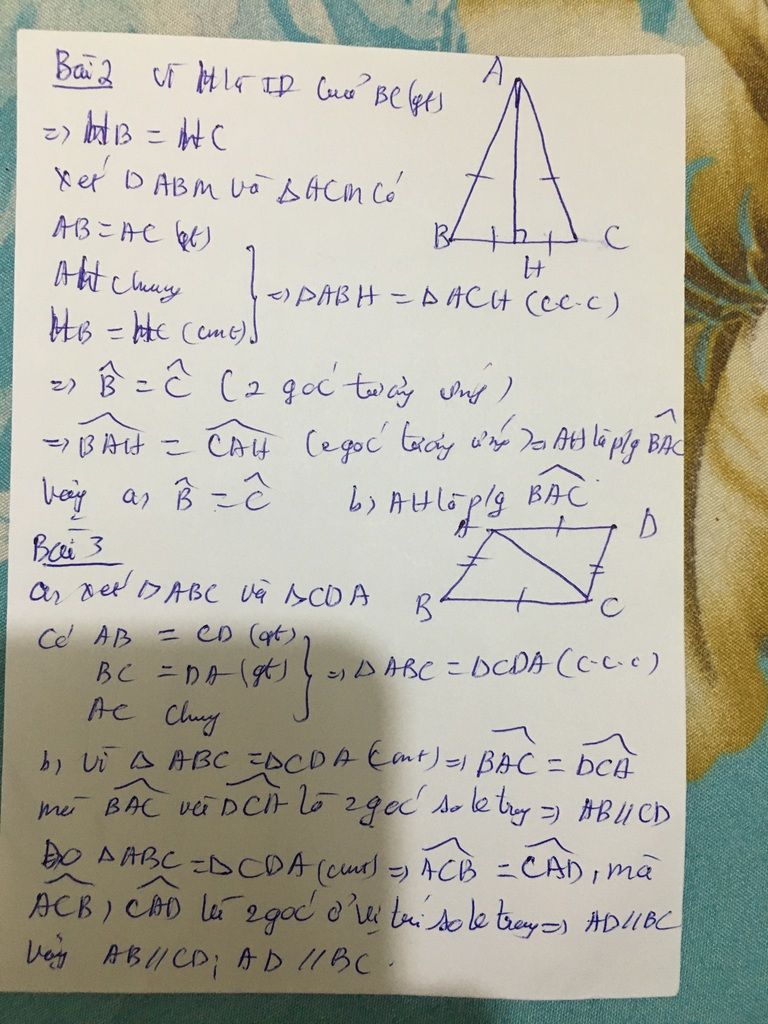 Bài 2 Vì H là TĐ của BC (gt)
=> HB = HC
Xét Δ ABM và Δ ACM có
AB = AC (gt)
AH chung
HB = HC (cmt)
=> ΔABH = ΔACH (c.c.c)
A
B
C
H
=> B̂ = Ĉ (2 góc tương ứng)
=> BAH = CAH (2 góc tương ứng) => AH là p/g BAC
Vậy a, B̂ = Ĉ b) AH là p/g BAC
Bài 3
A
D
B
C
a, xét ΔABC và ΔCDA
Có AB = CD (gt)
BC = DA (gt)
AC chung
=> ΔABC = ΔCDA (c-c-c)
b, Vì Δ ABC = ΔCDA (cmt) => BAC = DCA
mà BAC và DCA là 2 góc so le trong => AB//CD
Do ΔABC = ΔCDA (cmt) => ACB = CAD, mà
ACB, CAD là 2 góc ở vị trí so le trong => AD//BC
Vậy AB//CD; AD//BC.